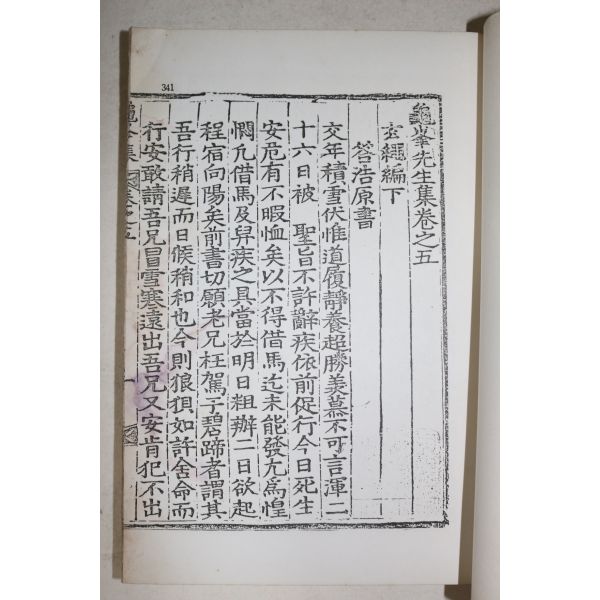 341
龜峯先生集卷之五
玄繩編下
答浩原書
交年積雪伏惟道履靜養超勝羡慕不可言渾二
十六日被 聖旨不許辭疾依前促行今日死生
安危有不暇恤矣以不得借馬迄未能發尤爲惶
憫凡借馬及舁疾之具當於明日粗辦二日欲起
程宿向陽矣前書切願老兄枉駕于碧蹄者謂其
吾行稍遲而日候稍和也今則狼狽如許舍命而
行安敢請吾兄冒雪寒遠出吾兄又安肯犯不出